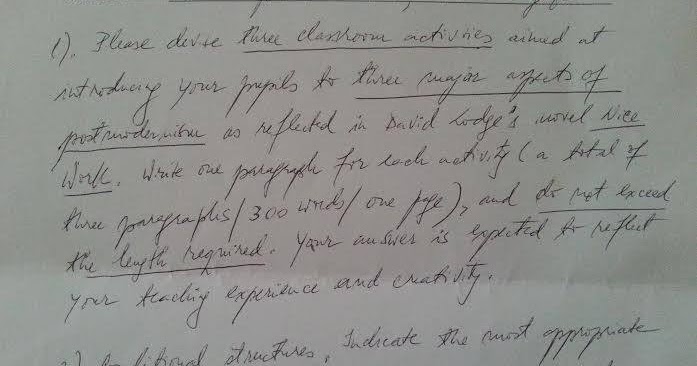 1). Please devise three classroom activities aimed at
introducing your pupils to three major aspects of
postmodernism as reflected in David Lodge's novel Nice
Work. Write one paragraph for each activity (a total of
three paragraphs/300 words/one page), and do not exceed
the length required. Your answer is expected to reflect
your teaching experience and creativity.
structures. Indicate the most appropriate